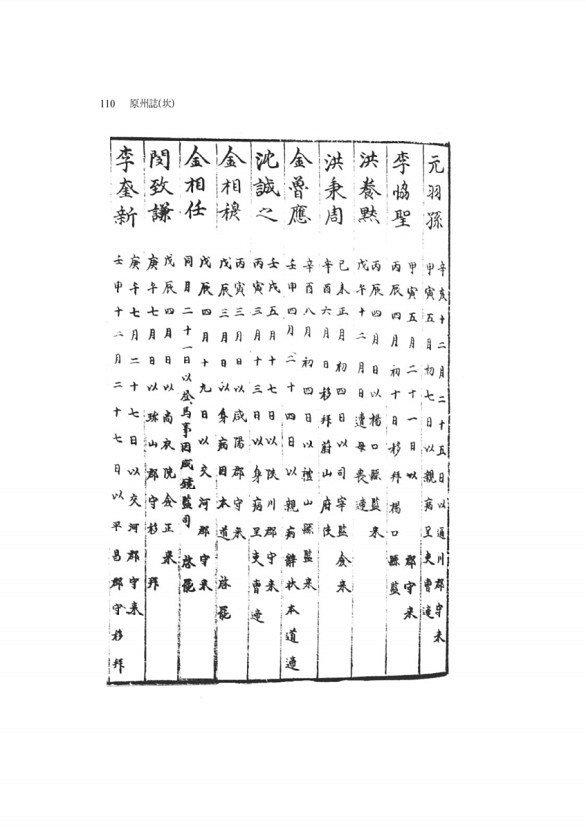 110 原州誌(坎)
元羽孫
辛亥十二月二十五日以通川郡守来
甲寅五月初七日以親病呈吏曹遞
李協聖
甲寅五月二十一日以 郡守来
丙辰四月初十日移拜楊口縣監
洪養黙
丙辰四月 日以楊口縣監来
戊午十二月 日遭母喪遞
洪秉周
己未正月初四日以司宰監僉来
辛酉六月 日移拜蔚山府使
金曾應
辛酉八月初四日以禮山縣監来
壬甲四月二十四日以親病辭狀本道遞
沈誠之
壬戌五月十七日以陜川郡守来
丙寅三月十三日以身病呈吏曹遞
金相稷
丙寅三月 日以咸陽郡守来
戊辰三月 日以身病因本道 啓罷
金相任
戊辰四月十九日以交河郡守来
同月二十一日以 馬事因咸鏡監司 啓罷
閔致謙
戊辰四月 日以尚衣院僉正来
庚午七月 日以瑞山郡守移拜
李奎新
庚午七月二十七日以交河郡守来
壬甲十二月二十七日以平昌郡守移拜